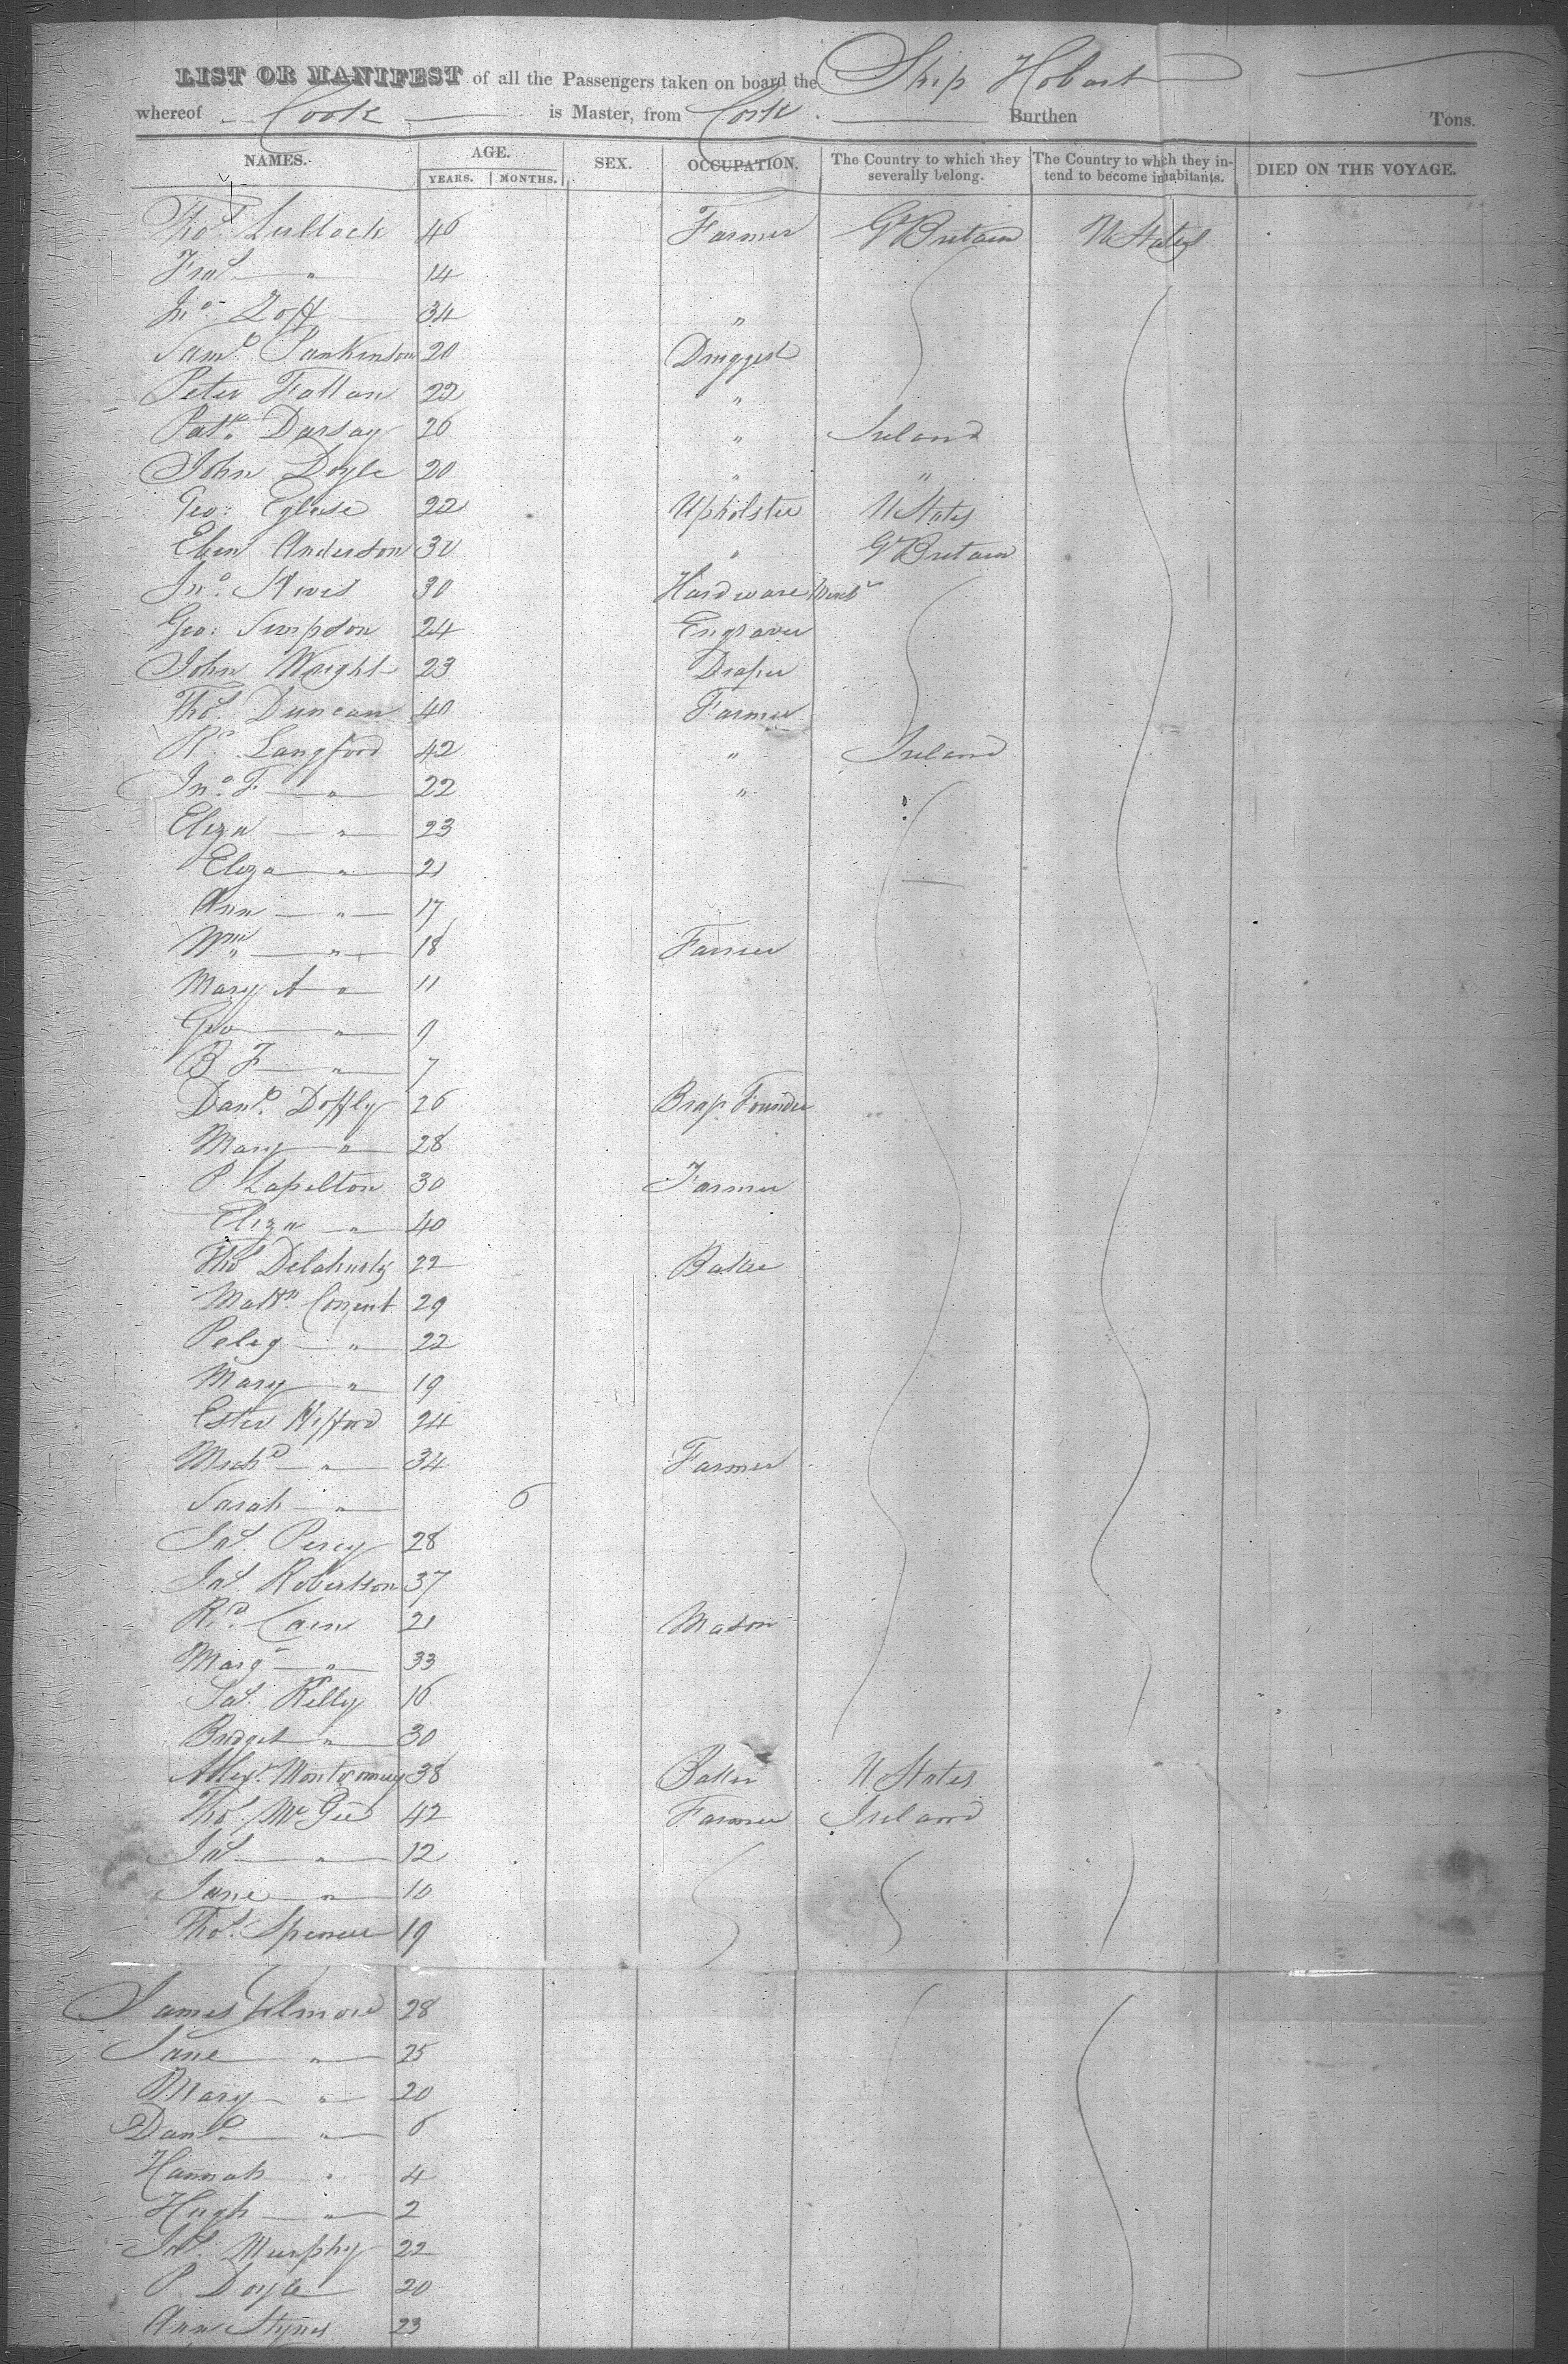 LIST OR MANIFEST of all the Passengers taken on board the Ship Hobart
whereof Cook is Master, from Cork Burthen Tons.
NAMES. AGE. SEX. OCCUPATION. The Country to which they severally belong. The Country to which they intend to become inhabitants. DIED ON THE VOYAGE.
YEARS. MONTHS.
Thos. 46 Farmer Gt Britain U States
Fras " 14
Jno. 34 "
Saml. 20 Druggist
Peter Fallan 22 "
Patk. Darsay 26 " Ireland
John Doyle 20 " "
Geo: 22 Upholster U States
Eben Anderson 30 " Gt Britain
Jno. 30 Hardware Mercht
Geo: Simpson 24 Engraver
John Wright 23 Draper
Thos. Duncan 40 Farmer
Rd. Langford 42 " Ireland
Jno. F. " 22 "
Eliza " 23
Eliza " 21
Ann " 17
Wm " 18 Farmer
Mary A " 11
Geo " 9
B F " 7
Danl. Doffly 26 Brass Founder
Mary " 28
P. 30 Farmer
Eliza " 40
Thos 22 Baker
Matt. 29
Peleg " 22
Mary " 19
Ester 24
Michl " 34 Farmer
Sarah " 6
Jas. Percy 28
Jas. Robertson 37
Rd. Cain 21 Mason
Marg " 33
Jas. Kelly 16
Bridget " 30
Allexr. Montgomery 38 Baker U States
Thos. McGee 42 Farmer Ireland
Jas " 12
Jane " 10
Thos. Spencer 19
James Gilmore 28
Jane " 25
Mary " 20
Danl. " 6
Hannah " 4
Hugh " 2
Jas. Murphy 22
P. Doyle 20
Ann Stynes 23